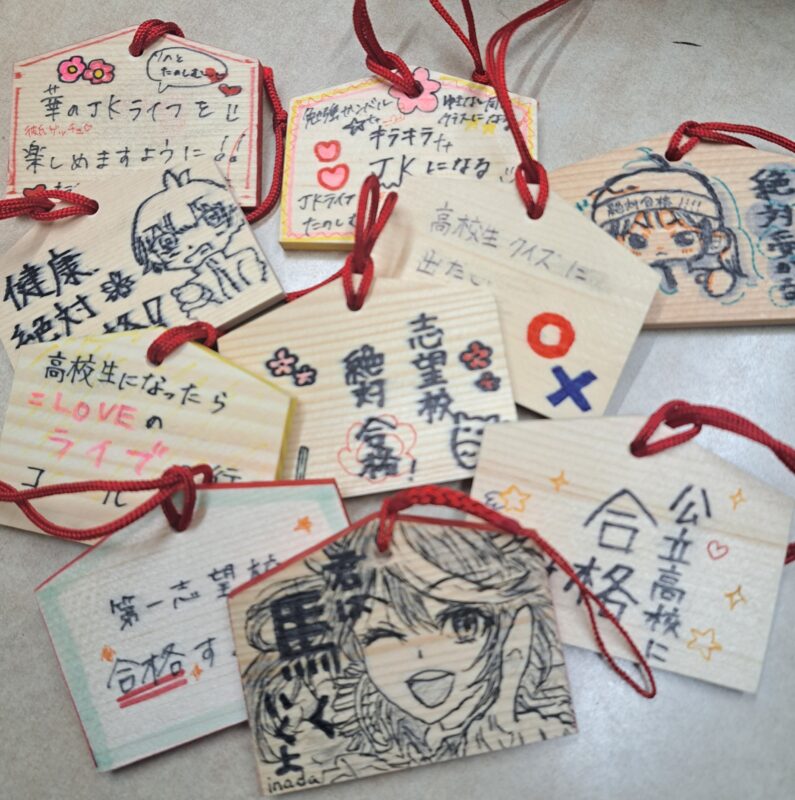 華のJKライフを!!
楽しめますように!!
たのしむ
勉強
キラキラ
JKになる
JKライフ
たのしむ
絶対合格!!!!
絶対受かる
健康
絶対
高校生クイズに
出た
志望校
絶対合格!
高校生になったら
=LOVEの
ライブ
公立高校に
合格
第一志望校
合格す
君は
馬く
いくよ
inada